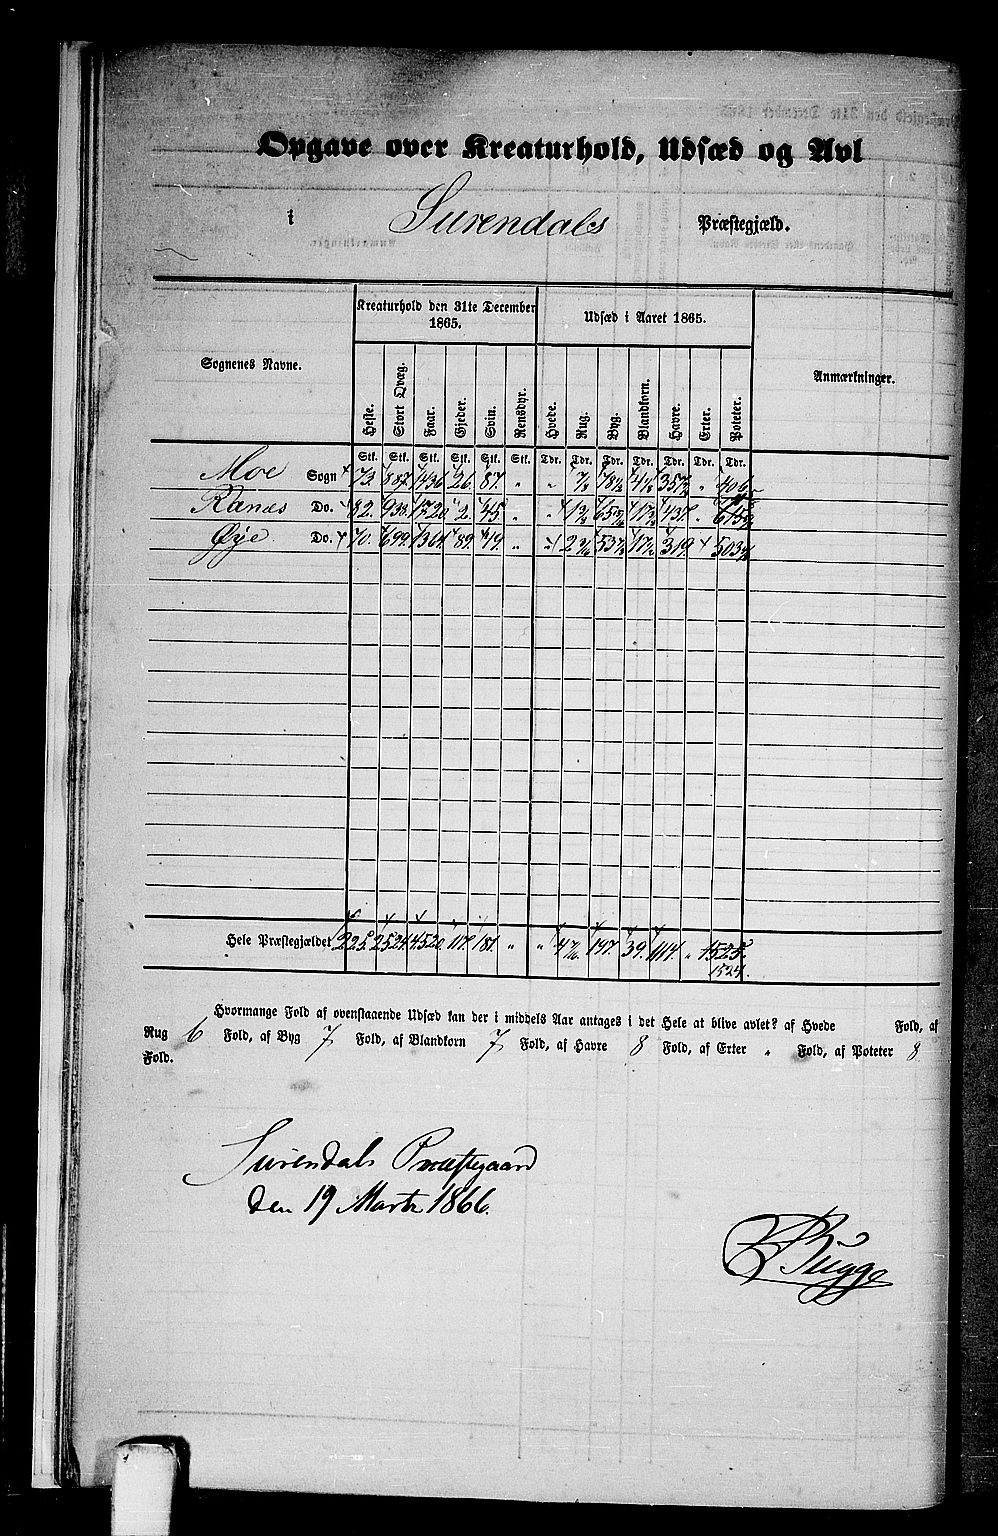 Opgave over Kreaturhold, Udsæd og Avl
i Surendals Præstegjæld.
Sognenes Navne. Kreaturhold den 31te December 1865. Udsæd i Aaret 1865. Anmærkninger.
Heste. Stort Qvæg. Faar. Gjeder. Svin. Rensdyr. Hvede. Rug. Byg. Blandkorn. Havre. Erter. Poteter.
Stk. Stk. Stk. Stk. Stk. Stk. Tdr. Tdr. Tdr. Tdr. Tdr. Tdr. Tdr.
Moe Sogn 73. 887. 1436 26. 87. " "
Ranæs Do. 82. 938. 1720. 2. 45. "
Øye Do. 70. 699. 1364. 89. 49. "
Hele Præstegjældet 225. 2524. 4520. 117. 181. " " 147. 39. 1114. " 1525.
1524.
Hvormange Fold af ovenstaaende Udsæd kan der i middels Aar antages i det Hele at blive avlet? af Hvede Fold, af
Rug 6 Fold, af Byg 7 Fold, af Blandkorn 7 Fold, af Havre 8 Fold, af Erter " Fold, af Poteter 8
Fold.
Surendals Præstegaard
den 19 Marts 1866.
Bugge